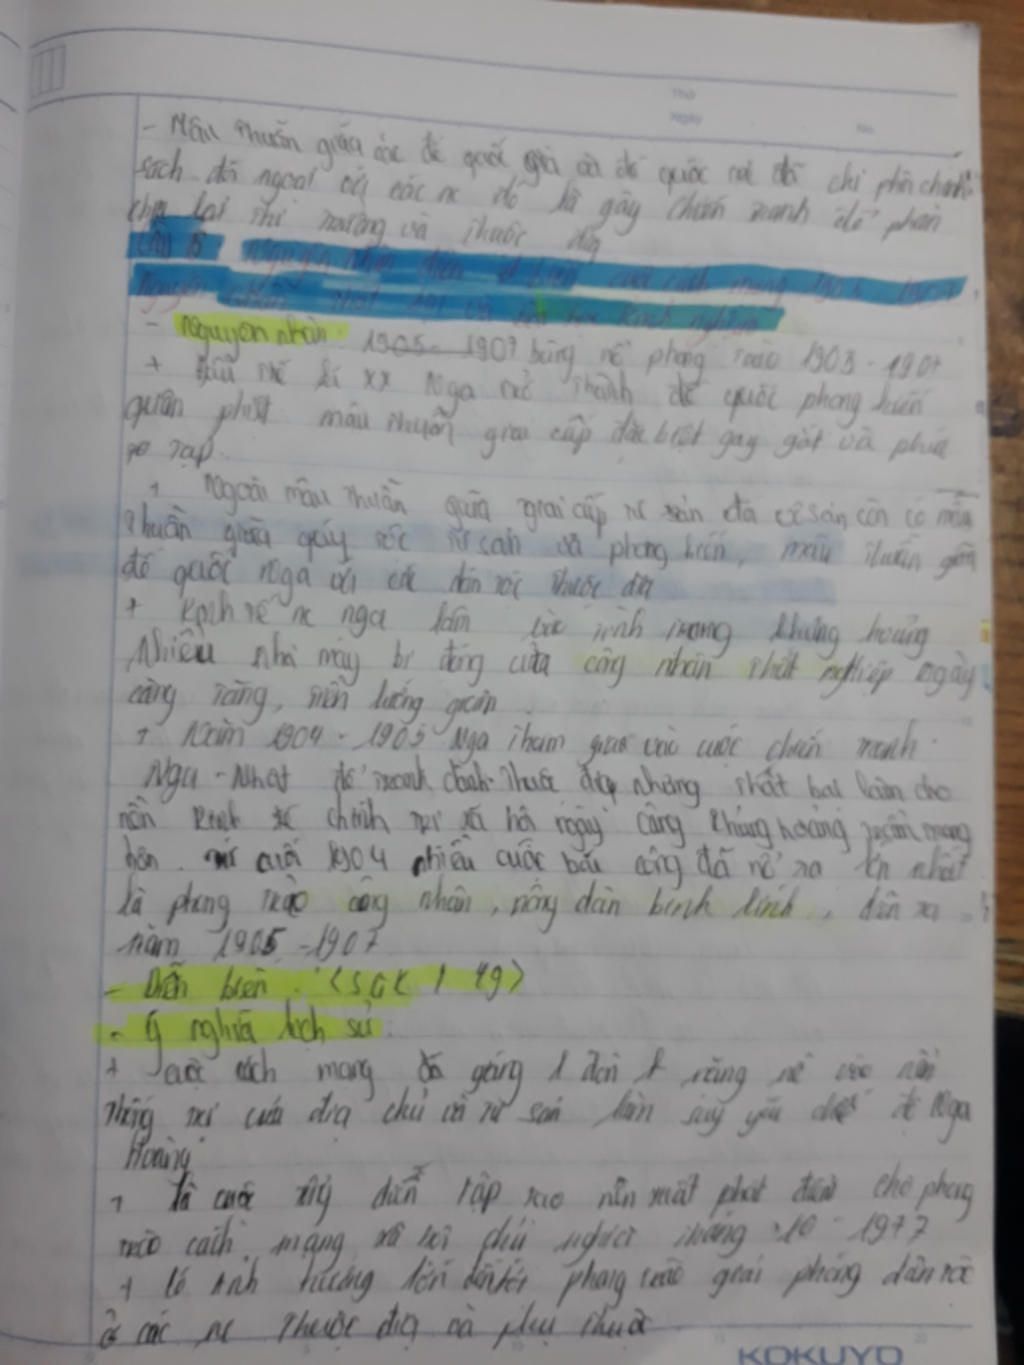 Thứ
Ngày
No
- Mâu thuẫn giữa các đế quốc già và đế quốc chi phối chính
sách đối ngoại của các nc đó là gây chiến tranh để phân
chia lại thị trường và thuộc địa
Câu 5 Nguyên nhân diễn biến của cách mạng 1905 1907
Nguyên nhân thất bại và bài học kinh nghiệm
- Nguyên nhân 1905 - 1907 bùng nổ phong trào 1905 - 1907
+ Đầu thế kỉ XX Nga trở thành đế quốc phong kiến
quân phiệt mâu thuẫn giai cấp đặc biệt gay gắt và phức
tạp.
+ Ngoài mâu thuẫn giữa giai cấp tư sản và vô sản còn có mâu
thuẫn giữa quý tộc tư sản và phong kiến, mâu thuẫn giữa
đế quốc Nga với các dân tộc thuộc địa
+ Kinh tế nc nga lâm vào tình trạng khủng hoảng
Nhiều nhà máy bị đóng cửa công nhân thất nghiệp ngày
càng tăng, tiền lương giảm
+ Năm 1904 - 1905 Nga tham gia vào cuộc chiến tranh
Nga - Nhật để tranh dành thuộc địa nhưng thất bại làm cho
nền kinh tế chính trị xã hội ngày càng khủng hoảng trầm trọng
hơn. từ cuối 1904 nhiều cuộc bãi công đã nổ ra lớn nhất
là phong trào công nhân, nông dân binh lính, diễn ra
năm 1905 - 1907
- Diễn biến. (SGK / 49)
- Ý nghĩa lịch sử
+ cuộc cách mạng đã giáng 1 đòn nặng nề vào nền
thống trị của địa chủ và tư sản làm suy yếu đế Nga
Hoàng
+ Là cuộc diễn tập tạo nên xuất phát điểm cho phong
trào cách mạng xã hội chủ nghĩa tháng 10 - 1977
+ Có ảnh hưởng lớn đến phong trào giải phóng dân tộc
ở các nc thuộc địa và phụ thuộc
KOKUYO